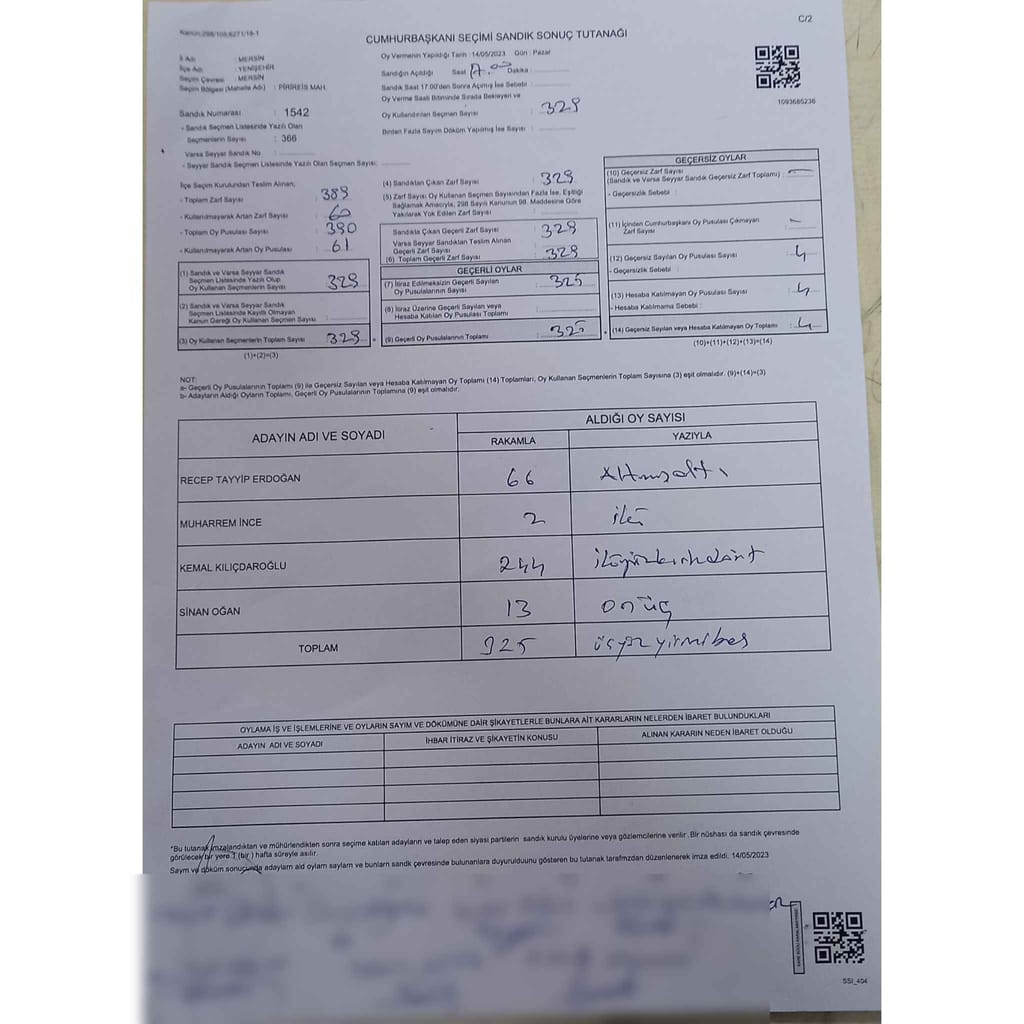 Kanun:298/105,6271/18-1
C/2
CUMHURBAŞKANI SEÇİMİ SANDIK SONUÇ TUTANAĞI
İl Adı : MERSİN
İlçe Adı : YENİŞEHİR
Seçim Çevresi : MERSİN
Seçim Bölgesi (Mahalle Adı) : PİRİREİS MAH.
Sandık Numarası : 1542
- Sandık Seçmen Listesinde Yazılı Olan
Seçmenlerin Sayısı : 366
Varsa Seyyar Sandık No :
- Seyyar Sandık Seçmen Listesinde Yazılı Olan Seçmen Sayısı:
Oy Vermenin Yapıldığı Tarih : 14/05/2023 Gün : Pazar
Sandığın Açıldığı Saat Dakika :
Sandık Saat 17.00'den Sonra Açılmış İse Sebebi :
Oy Verme Saati Bitiminde Sırada Bekleyen ve
Oy Kullandırılan Seçmen Sayısı : 329
Birden Fazla Sayım Döküm Yapılmış İse Sayısı :
1093685236
İlçe Seçim Kurulundan Teslim Alınan,
- Toplam Zarf Sayısı : 389
- Kullanılmayarak Artan Zarf Sayısı : 60
- Toplam Oy Pusulası Sayısı : 390
- Kullanılmayarak Artan Oy Pusulası : 61
(1) Sandık ve Varsa Seyyar Sandık
Seçmen Listesinde Yazılı Olup
Oy Kullanan Seçmenlerin Sayısı : 329
(2) Sandık ve Varsa Seyyar Sandık
Seçmen Listesinde Kayıtlı Olmayan
Kanun Gereği Oy Kullanan Seçmen Sayısı :
(3) Oy Kullanan Seçmenlerin Toplam Sayısı : 329
(1)+(2)=(3)
(4) Sandıktan Çıkan Zarf Sayısı : 329
(5) Zarf Sayısı Oy Kullanan Seçmen Sayısından Fazla İse, Eşitliği
Sağlamak Amacıyla, 298 Sayılı Kanunun 98. Maddesine Göre
Yakılarak Yok Edilen Zarf Sayısı :
Sandıkla Çıkan Geçerli Zarf Sayısı : 329
Varsa Seyyar Sandıktan Teslim Alınan
Geçerli Zarf Sayısı :
(6) Toplam Geçerli Zarf Sayısı : 329
GEÇERLİ OYLAR
(7) İtiraz Edilmeksizin Geçerli Sayılan
Oy Pusulalarının Sayısı : 325
(8) İtiraz Üzerine Geçerli Sayılan veya
Hesaba Katılan Oy Pusulası Toplamı :
(9) Geçerli Oy Pusulalarının Toplamı : 325
GEÇERSİZ OYLAR
(10) Geçersiz Zarf Sayısı
(Sandık ve Varsa Seyyar Sandık Geçersiz Zarf Toplamı) : —
- Geçersizlik Sebebi :
(11) İçinden Cumhurbaşkanı Oy Pusulası Çıkmayan
Zarf Sayısı : -
(12) Geçersiz Sayılan Oy Pusulası Sayısı : 4
- Geçersizlik Sebebi :
(13) Hesaba Katılmayan Oy Pusulası Sayısı : 4
- Hesaba Katılmama Sebebi :
(14) Geçersiz Sayılan veya Hesaba Katılmayan Oy Toplamı : 4
(10)+(11)+(12)+(13)=(14)
NOT:
a- Geçerli Oy Pusulalarının Toplamı (9) ile Geçersiz Sayılan veya Hesaba Katılmayan Oy Toplamı (14) Toplamları, Oy Kullanan Seçmenlerin Toplam Sayısına (3) eşit olmalıdır. (9)+(14)=(3)
b- Adayların Aldığı Oyların Toplamı, Geçerli Oy Pusulalarının Toplamına (9) eşit olmalıdır.
ADAYIN ADI VE SOYADI
ALDIĞI OY SAYISI
RAKAMLA YAZIYLA
RECEP TAYYİP ERDOĞAN 66 Altmışaltı
MUHARREM İNCE 2 iki
KEMAL KILIÇDAROĞLU 244 ikiyüzkırkdört
SİNAN OĞAN 13 onüç
TOPLAM 325 üçyüzyirmibeş
OYLAMA İŞ VE İŞLEMLERİNE VE OYLARIN SAYIM VE DÖKÜMÜNE DAİR ŞİKAYETLERLE BUNLARA AİT KARARLARIN NELERDEN İBARET BULUNDUKLARI
ADAYIN ADI VE SOYADI İHBAR İTİRAZ VE ŞİKAYETİN KONUSU ALINAN KARARIN NEDEN İBARET OLDUĞU
*Bu tutanak imzalandıktan ve mühürlendikten sonra seçime katılan adayların ve talep eden siyasi partilerin sandık kurulu üyelerine veya gözlemcilerine verilir. Bir nüshası da sandık çevresinde
görülecek bir yere 1 (bir ) hafta süreyle asılır.
Sayım ve döküm sonuçunda adaylarn aid oylarn sayların ve bunların sandk çevresinde bulunanlara duyurulduunu gösteren bu tutanak tarafmzdan düzenlenerek imza edildi. 14/05/2023
SSI_404